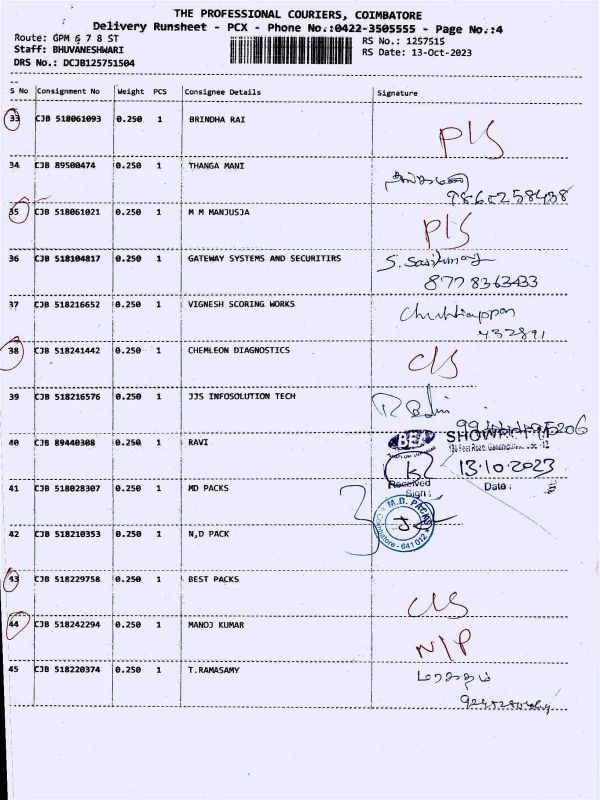 THE PROFESSIONAL COURIERS, COIMBATORE
Delivery Runsheet - PCX - Phone No.:0422-3505555 - Page No.:4
Route: GPM 6 7 8 ST
RS No.: 1257515
Staff: BHUVANESHWARI
RS Date: 13-Oct-2023
DRS No.: DCJB125751504
S No Consignment No Weight PCS Consignee Details Signature
33 CJB 518061093 0.250 1 BRINDHA RAI P/S
34 CJB 89500474 0.250 1 THANGA MANI
35 CJB 518061021 0.250 1 M M MANJUSJA P/S
36 CJB 518104817 0.250 1 GATEWAY SYSTEMS AND SECURITIRS S. Sasikumar
8778363433
37 CJB 518216652 0.250 1 VIGNESH SCORING WORKS
432891
38 CJB 518241442 0.250 1 CHEMLEON DIAGNOSTICS C/S
39 CJB 518216576 0.250 1 JJS INFOSOLUTION TECH
40 CJB 89440308 0.250 1 RAVI
13.10.2023
Received
Sign:
Date :
41 CJB 518028307 0.250 1 MD PACKS
M.D. PACKS
Coimbatore - 641 012
42 CJB 518210353 0.250 1 N,D PACK
43 CJB 518229758 0.250 1 BEST PACKS C/S
44 CJB 518242294 0.250 1 MANOJ KUMAR N/P
45 CJB 518220374 0.250 1 T.RAMASAMY